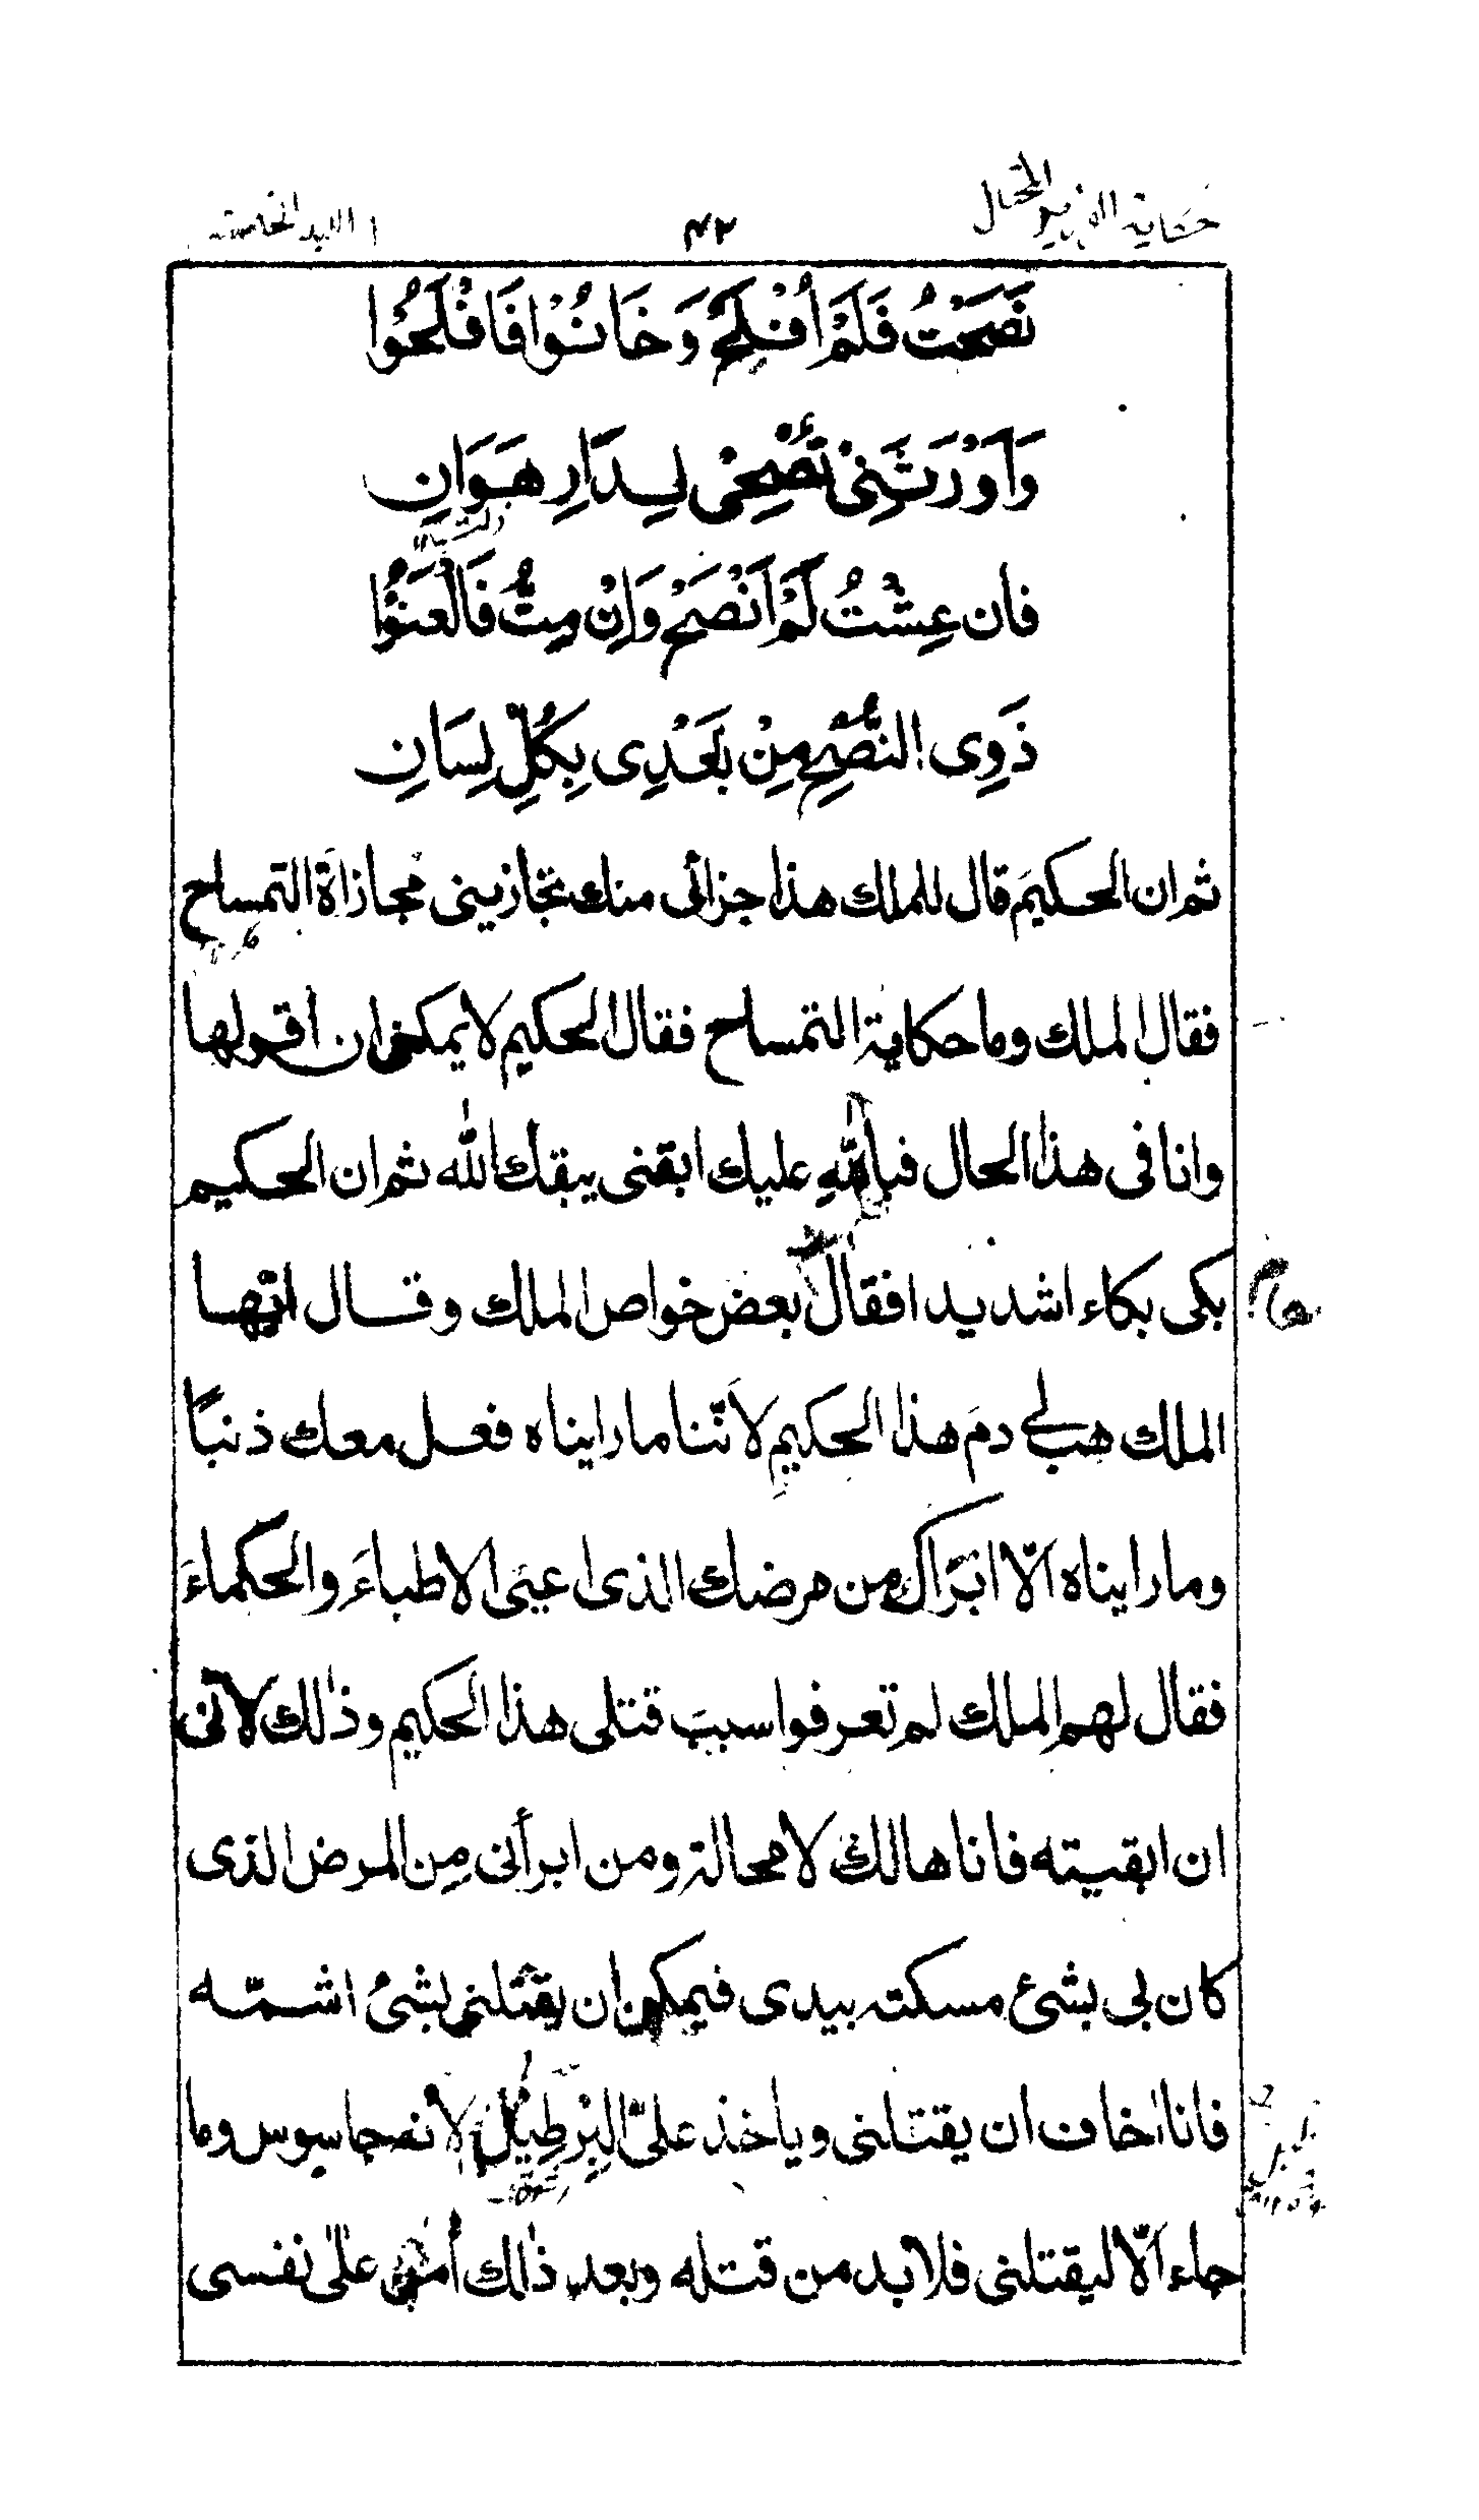 حكاية الوزير المحتال ٤٣ الليلة الخامسة
نَصَحْتُ فَلَمْ أُفْلِحْ وَخَانُوْا فَافْلَحُوْا
وَاَوْرَثَنِى نُصْحِىْ لِدَارِ هَوَانِ
فان عِشْتُ لَمْ اَنْصَحْ وَاِنْ مِتُّ فَالْعَنُوْا
ذَوِى النُّصْحِ مِنْ بَعْدِى بِكُلِّ لِسَانِ
ثم ان الحكيمَ قال للملك هذا جزائى منك تجازينى مُجازاةَ التمساح
فقال الملك وما حكاية التمساح فقال الحكيم لا يمكن ان اقولها
وانا فى هذا الحال فباللّٰهِ عليك ابقنى يبقك اللّٰه ثم ان الحكيم
بكى بكاء اشديدا فقال بعض خواص الملك وقال ايّها
الملك هب لى دمَ هذا الحكيمِ لاَنّنا ما رايناه فعل معك ذنبًا
وما رايناه الّا ابرَاك من مرضك الذى اعيىَ الاطباءَ والحكماءَ
فقال لهم الملك لم تعرفوا سببَ قتلى هذا الحكيم وذٰلك لانّى
ان ابقيته فانا هالك لا محالة ومن ابرأنى مِن المرض الذى
كان بى بشئ مسكته بيدى فيمكن ان يقتلنى بشئ اشمّه
فانا اخاف ان يقتلنى وياخذ علىّ البِرْطِيْلَ لانه جاسوس وما
جاء الّا ليقتلنى فلا بد من قتله وبعد ذٰلك أمنُ علىٰ نفسى